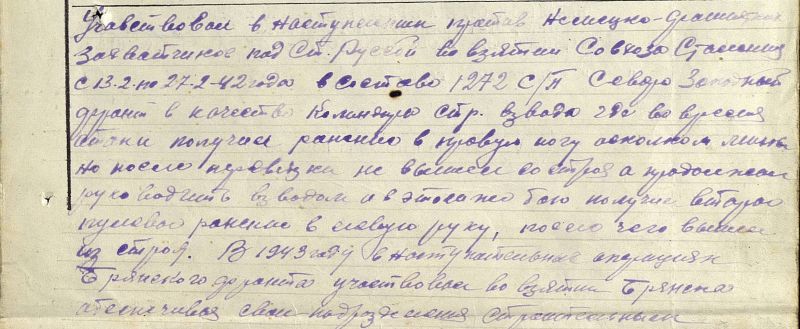 Учавствовал в наступлении против Немецко-фашистких
захватчиков под Ст. Руссой во взятии Совхоза Сталина
с 13-2 по 27-2-42 года в составе 1272 с/п Северо Западный
фронт в качестве Командира стр. взвода где во время
атаки получил ранение в правую ногу осколком мины
но после перевязки не вышел со строя а продолжал
руководить взводом и в этом же бою получил второе
пулевое ранение в левую руку, после чего вышел
из строя. В 1943 году в наступательных операциях
Брянского фронта участвовал во взятии Брянска
обеспечивая свои подразделения строительным